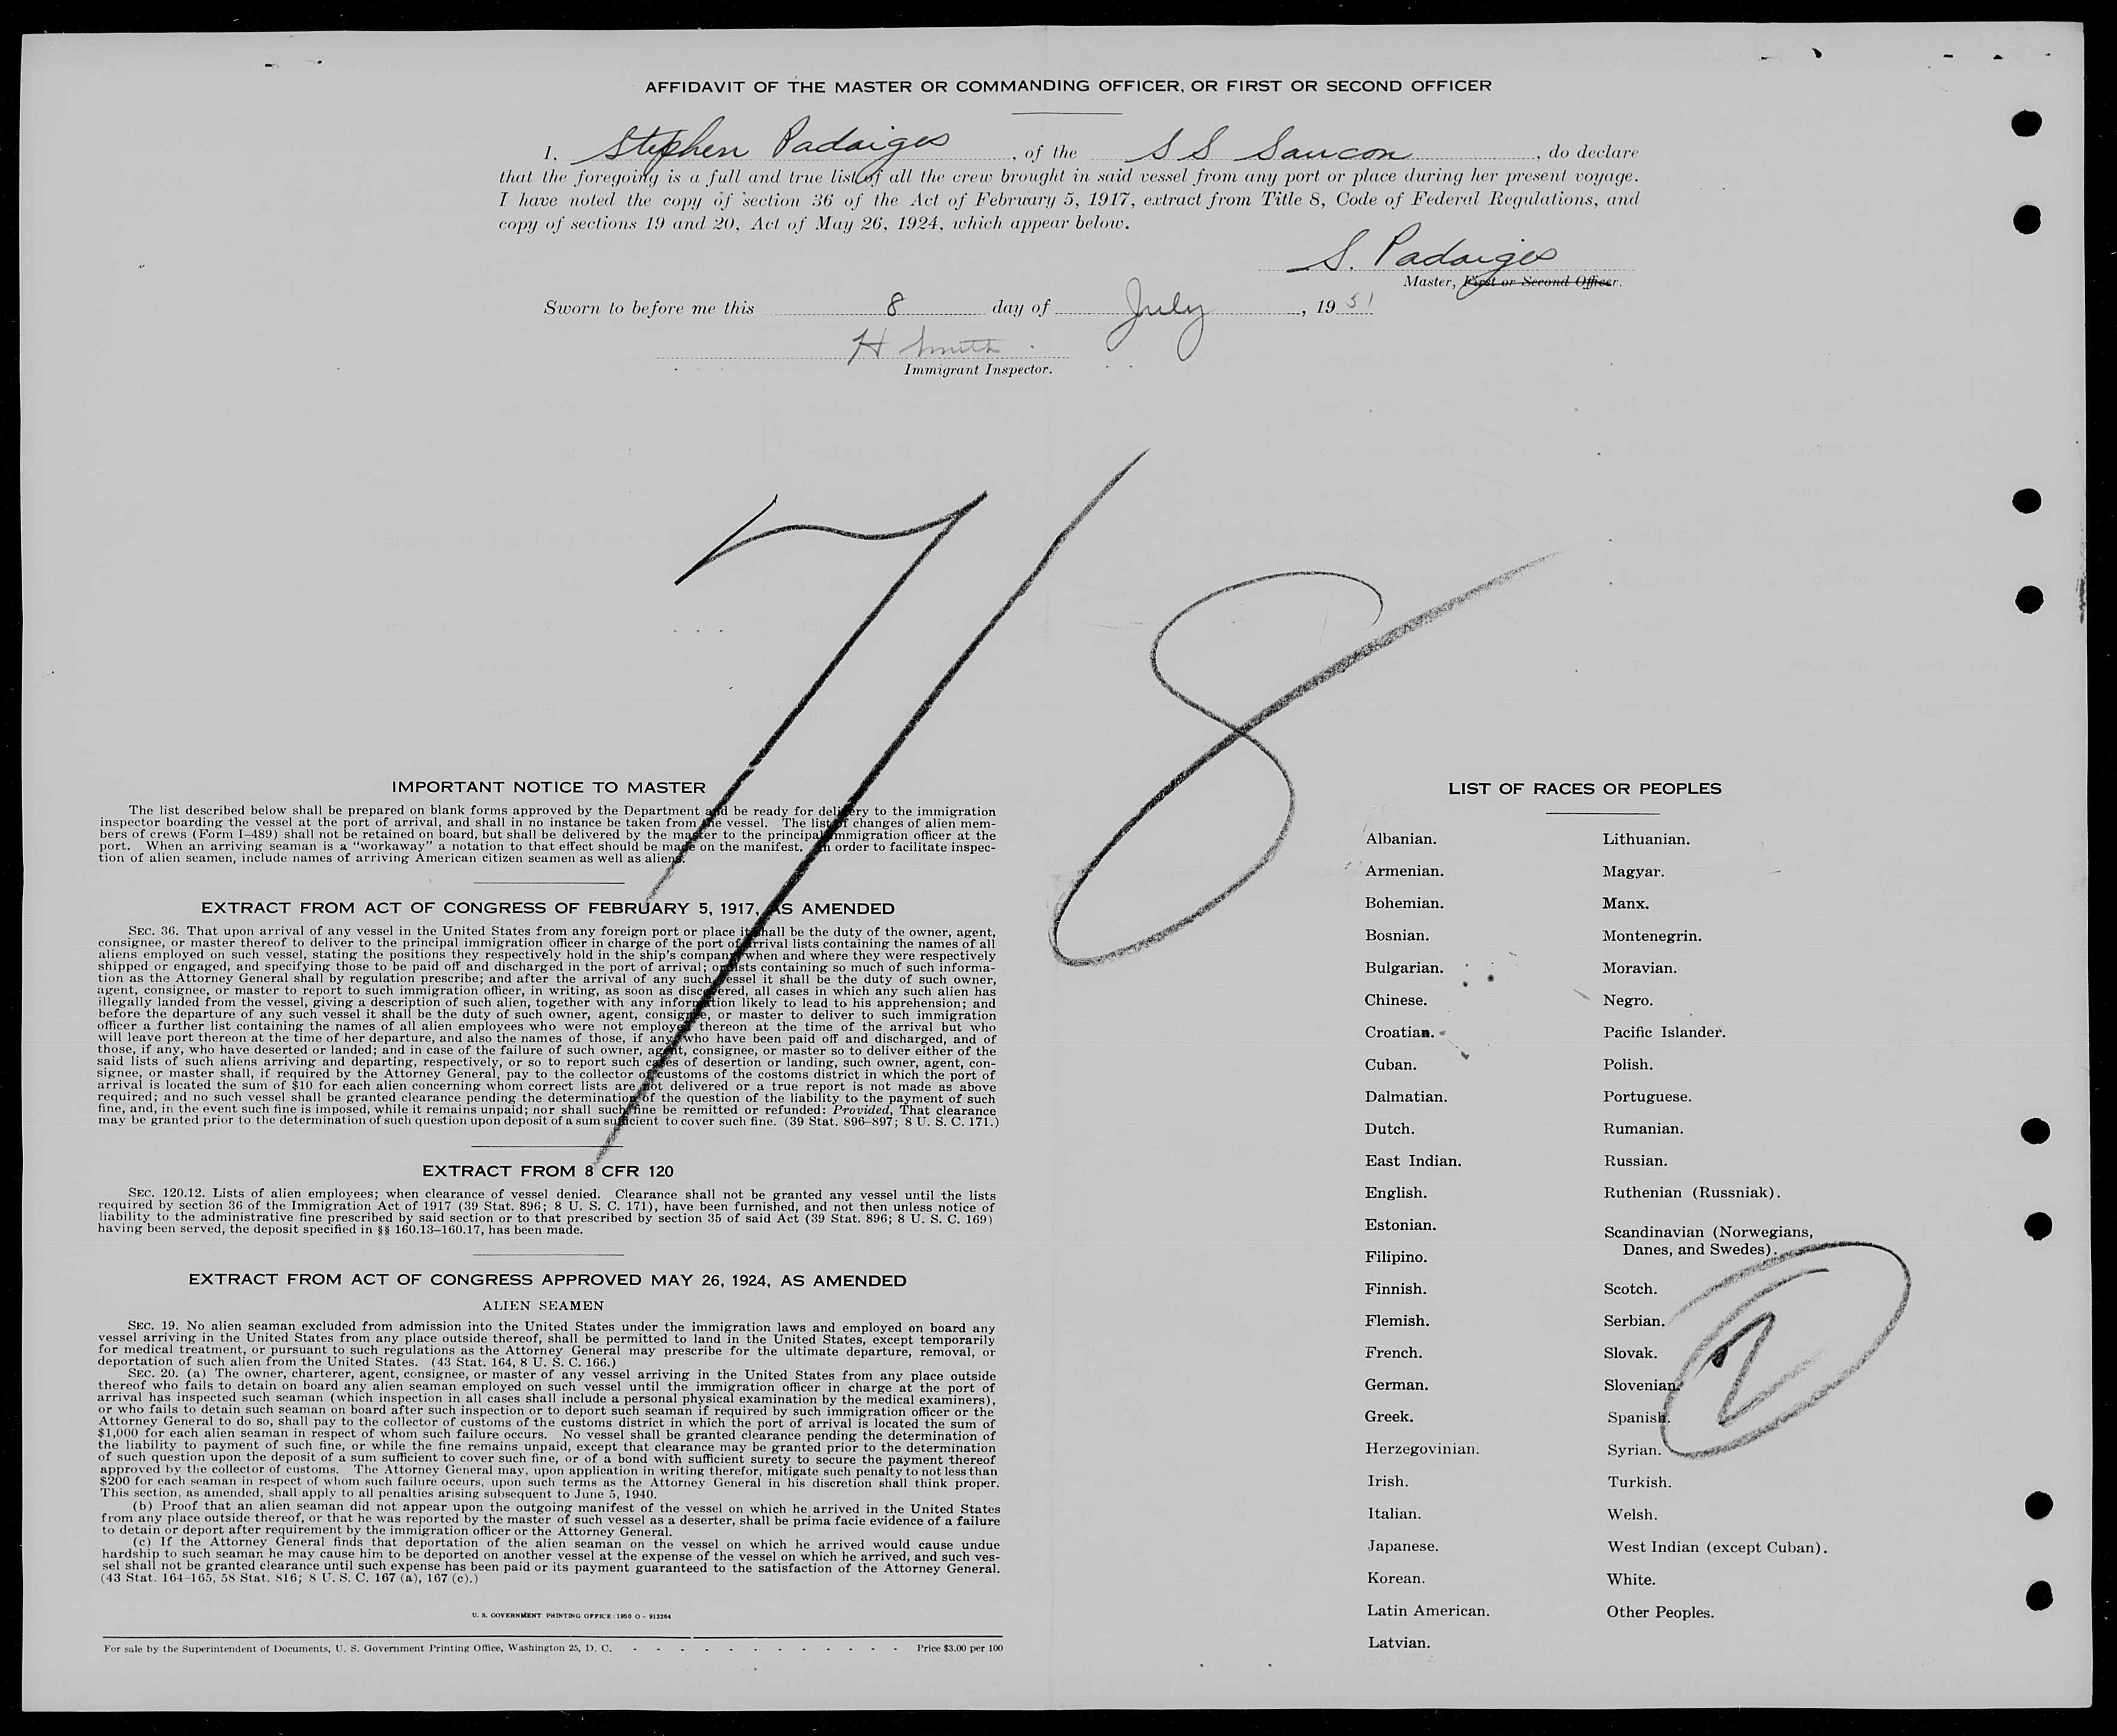 AFFIDAVIT OF THE MASTER OR COMMANDING OFFICER, OR FIRST OR SECOND OFFICER
I, Stephen Padaiges, of the SS Saucon, do declare
that the foregoing is a full and true list of all the crew brought in said vessel from any port or place during her present voyage.
I have noted the copy of section 36 of the Act of February 5, 1917, extract from Title 8, Code of Federal Regulations, and
copy of sections 19 and 20, Act of May 26, 1924, which appear below.
S. Padaiges
Master, First or Second Officer.
Sworn to before me this 8 day of July, 1951
H Smith
Immigrant Inspector.
7/8
IMPORTANT NOTICE TO MASTER
The list described below shall be prepared on blank forms approved by the Department and be ready for delivery to the immigration
inspector boarding the vessel at the port of arrival, and shall in no instance be taken from the vessel. The list of changes of alien mem-
bers of crews (Form I-489) shall not be retained on board, but shall be delivered by the master to the principal immigration officer at the
port. When an arriving seaman is a "workaway" a notation to that effect should be made on the manifest. In order to facilitate inspec-
tion of alien seamen, include names of arriving American citizen seamen as well as aliens.
EXTRACT FROM ACT OF CONGRESS OF FEBRUARY 5, 1917, AS AMENDED
SEC. 36. That upon arrival of any vessel in the United States from any foreign port or place it shall be the duty of the owner, agent,
consignee, or master thereof to deliver to the principal immigration officer in charge of the port of arrival lists containing the names of all
aliens employed on such vessel, stating the positions they respectively hold in the ship's company, when and where they were respectively
shipped or engaged, and specifying those to be paid off and discharged in the port of arrival; or lists containing so much of such informa-
tion as the Attorney General shall by regulation prescribe; and after the arrival of any such vessel it shall be the duty of such owner,
agent, consignee, or master to report to such immigration officer, in writing, as soon as discovered, all cases in which any such alien has
illegally landed from the vessel, giving a description of such alien, together with any information likely to lead to his apprehension; and
before the departure of any such vessel it shall be the duty of such owner, agent, consignee, or master to deliver to such immigration
officer a further list containing the names of all alien employees who were not employed thereon at the time of the arrival but who
will leave port thereon at the time of her departure, and also the names of those, if any, who have been paid off and discharged, and of
those, if any, who have deserted or landed; and in case of the failure of such owner, agent, consignee, or master so to deliver either of the
said lists of such aliens arriving and departing, respectively, or so to report such cases of desertion or landing, such owner, agent, con-
signee, or master shall, if required by the Attorney General, pay to the collector of customs of the costoms district in which the port of
arrival is located the sum of $10 for each alien concerning whom correct lists are not delivered or a true report is not made as above
required; and no such vessel shall be granted clearance pending the determination of the question of the liability to the payment of such
fine, and, in the event such fine is imposed, while it remains unpaid; nor shall such fine be remitted or refunded: Provided, That clearance
may be granted prior to the determination of such question upon deposit of a sum sufficient to cover such fine. (39 Stat. 896-897; 8 U. S. C. 171.)
EXTRACT FROM 8 CFR 120
SEC. 120.12. Lists of alien employees; when clearance of vessel denied. Clearance shall not be granted any vessel until the lists
required by section 36 of the Immigration Act of 1917 (39 Stat. 896; 8 U. S. C. 171), have been furnished, and not then unless notice of
liability to the administrative fine prescribed by said section or to that prescribed by section 35 of said Act (39 Stat. 896; 8 U. S. C. 169)
having been served, the deposit specified in §§ 160.13-160.17, has been made.
EXTRACT FROM ACT OF CONGRESS APPROVED MAY 26, 1924, AS AMENDED
ALIEN SEAMEN
SEC. 19. No alien seaman excluded from admission into the United States under the immigration laws and employed on board any
vessel arriving in the United States from any place outside thereof, shall be permitted to land in the United States, except temporarily
for medical treatment, or pursuant to such regulations as the Attorney General may prescribe for the ultimate departure, removal, or
deportation of such alien from the United States. (43 Stat. 164, 8 U. S. C. 166.)
SEC. 20. (a) The owner, charterer, agent, consignee, or master of any vessel arriving in the United States from any place outside
thereof who fails to detain on board any alien seaman employed on such vessel until the immigration officer in charge at the port of
arrival has inspected such seaman (which inspection in all cases shall include a personal physical examination by the medical examiners),
or who fails to detain such seaman on board after such inspection or to deport such seaman if required by such immigration officer or the
Attorney General to do so, shall pay to the collector of customs of the customs district in which the port of arrival is located the sum of
$1,000 for each alien seaman in respect of whom such failure occurs. No vessel shall be granted clearance pending the determination of
the liability to payment of such fine, or while the fine remains unpaid, except that clearance may be granted prior to the determination
of such question upon the deposit of a sum sufficient to cover such fine, or of a bond with sufficient surety to secure the payment thereof
approved by the collector of customs. The Attorney General may, upon application in writing therefor, mitigate such penalty to not less than
$200 for each seaman in respect of whom such failure occurs, upon such terms as the Attorney General in his discretion shall think proper.
This section, as amended, shall apply to all penalties arising subsequent to June 5, 1940.
(b) Proof that an alien seaman did not appear upon the outgoing manifest of the vessel on which he arrived in the United States
from any place outside thereof, or that he was reported by the master of such vessel as a deserter, shall be prima facie evidence of a failure
to detain or deport after requirement by the immigration officer or the Attorney General.
(c) If the Attorney General finds that deportation of the alien seaman on the vessel on which he arrived would cause undue
hardship to such seaman he may cause him to be deported on another vessel at the expense of the vessel on which he arrived, and such ves-
sel shall not be granted clearance until such expense has been paid or its payment guaranteed to the satisfaction of the Attorney General.
(43 Stat. 164-165, 58 Stat. 816; 8 U. S. C. 167 (a), 167 (c).)
U. S. GOVERNMENT PRINTING OFFICE : 1950 O - 913264
For sale by the Superintendent of Documents, U. S. Government Printing Office, Washington 25, D. C. - - - - - - - - - - - - - Price $3.00 per 100
LIST OF RACES OR PEOPLES
Albanian.
Armenian.
Bohemian.
Bosnian.
Bulgarian.
Chinese.
Croatian.
Cuban.
Dalmatian.
Dutch.
East Indian.
English.
Estonian.
Filipino.
Finnish.
Flemish.
French.
German.
Greek.
Herzegovinian.
Irish.
Italian.
Japanese.
Korean.
Latin American.
Latvian.
Lithuanian.
Magyar.
Manx.
Montenegrin.
Moravian.
Negro.
Pacific Islander.
Polish.
Portuguese.
Rumanian.
Russian.
Ruthenian (Russniak).
Scandinavian (Norwegians,
Danes, and Swedes).
Scotch.
Serbian.
Slovak.
Slovenian.
Spanish.
Syrian.
Turkish.
Welsh.
West Indian (except Cuban).
White.
Other Peoples.
2